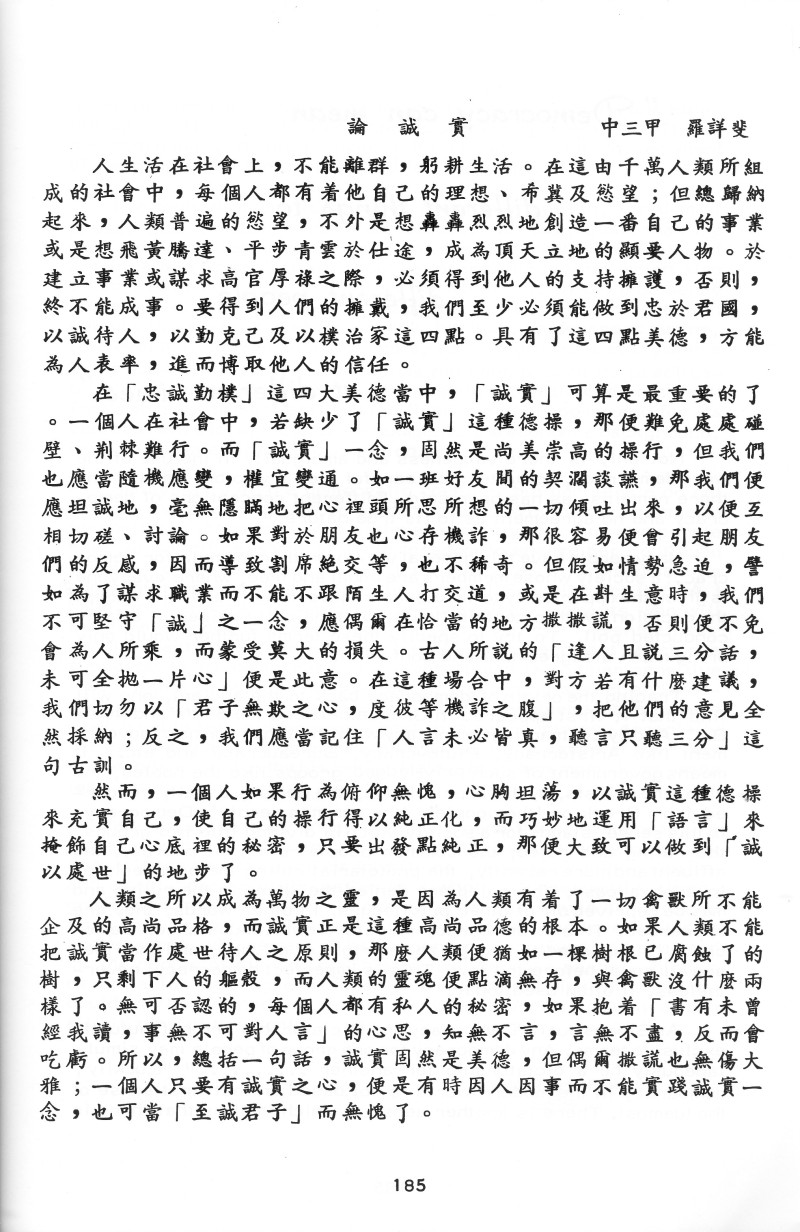 論誠實　中三甲　羅詳斐
人生活在社會上，不能離群，躬耕生活。在這由千萬人類所組
成的社會中，每個人都有着他自己的理想、希冀及慾望；但總歸納
起來，人類普遍的慾望，不外是想轟轟烈烈地創造一番自己的事業
或是想飛黃騰達、平步青雲於仕途，成為頂天立地的顯要人物。於
建立事業或謀求高官厚祿之際，必須得到他人的支持擁護，否則，
終不能成事。要得到人們的擁戴，我們至少必須能做到忠於君國，
以誠待人，以勤克己及以樸治家這四點。具有了這四點美德，方能
為人表率，進而博取他人的信任。
在「忠誠勤樸」這四大美德當中，「誠實」可算是最重要的了
。一個人在社會中，若缺少了「誠實」這種德操，那便難免處處碰
壁、荆棘難行。而「誠實」一念，固然是尚美崇高的操行，但我們
也應當隨機應變，權宜變通。如一班好友間的契濶談讌，那我們便
應坦誠地，毫無隱瞞地把心裡頭所思所想的一切傾吐出來，以便互
相切磋、討論。如果對於朋友也心存機詐，那很容易便會引起朋友
們的反感，因而導致割席絕交等，也不稀奇。但假如情勢急迫，譬
如為了謀求職業而不能不跟陌生人打交道，或是在斟生意時，我們
不可堅守「誠」之一念，應偶爾在恰當的地方撒撒謊，否則便不免
會為人所乘，而蒙受莫大的損失。古人所説的「逢人且説三分話，
未可全拋一片心」便是此意。在這種場合中，對方若有什麼建議，
我們切勿以「君子無欺之心，度彼等機詐之腹」，把他們的意見全
然採納；反之，我們應當記住「人言未必皆真，聽言只聽三分」這
句古訓。
然而，一個人如果行為俯仰無愧，心胸坦蕩，以誠實這種德操
來充實自己，使自己的操行得以純正化，而巧妙地運用「語言」來
掩飾自己心底裡的秘密，只要出發點純正，那便大致可以做到「誠
以處世」的地步了。
人類之所以成為萬物之靈，是因為人類有着了一切禽獸所不能
企及的高尚品格，而誠實正是這種高尚品德的根本。如果人類不能
把誠實當作處世待人之原則，那麼人類便猶如一棵樹根已腐蝕了的
樹，只剩下人的軀殼，而人類的靈魂便點滴無存，與禽獸沒什麼兩
樣了。無可否認的，每個人都有私人的秘密，如果抱着「書有未曾
經我讀，事無不可對人言」的心思，知無不言，言無不盡，反而會
吃虧。所以，總括一句話，誠實固然是美德，但偶爾撒謊也無傷大
雅；一個人只要有誠實之心，便是有時因人因事而不能實踐誠實一
念，也可當「至誠君子」而無愧了。
185